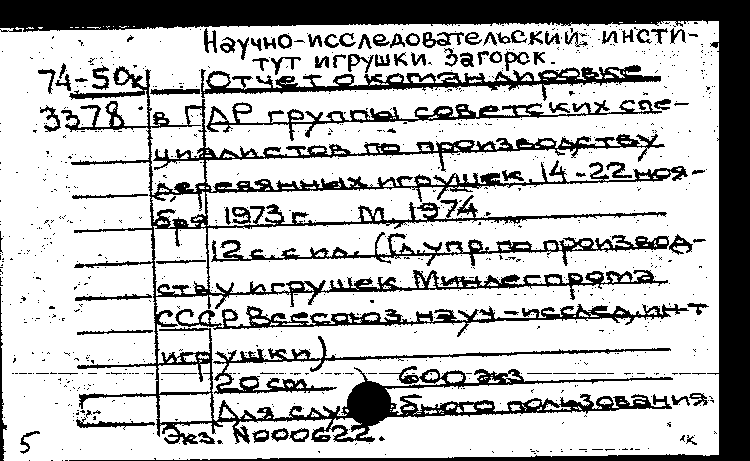 Научно-исследовательский инсти-
тут игрушки. Загорск.
74-50к Отчет о командировке
3378 в ГДР группы советских спе-
циалистов по производству
деревянных игрушек. 14-22 ноя-
бря 1973 г. М., 1974.
12 с. с ил. (Гл. упр. по производ-
ству игрушек Минлегпрома
СССР. Всесоюз. науч.-исслед. ин-т
игрушки).
20 см. 600 экз
Для служебного пользования
Экз. №000622.
5